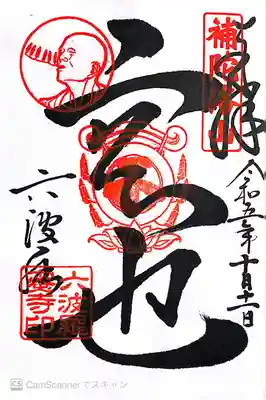 奉拝
令和五年十月
空也
六波
六波羅
蜜寺印
CS CamScannerでスキャン